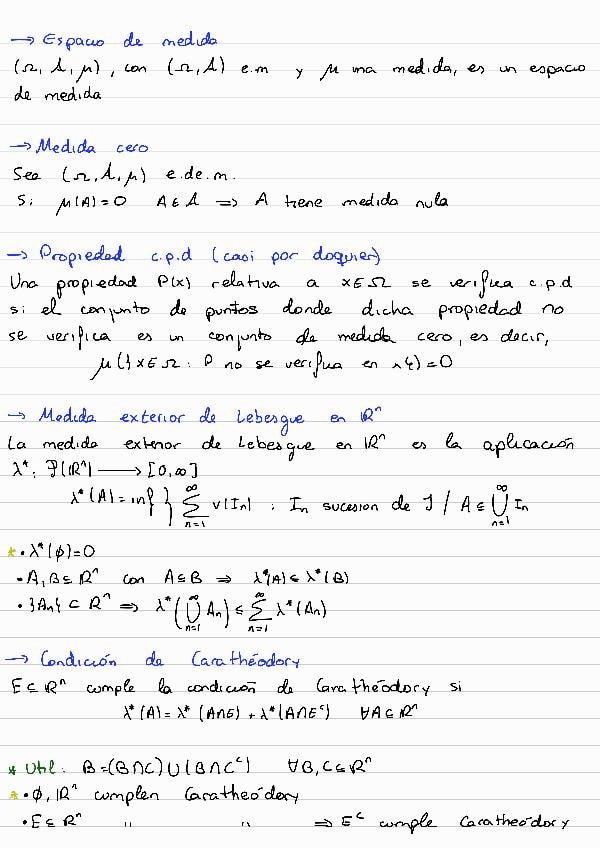 → Espacio de medida
(Ω, A, μ), con (Ω, A) e.m y μ una medida, es un espacio
de medida
→ Medida cero
Sea (Ω, A, μ) e.de.m.
Si μ(A)=0 A∈A ⇒ A tiene medida nula
→ Propiedad c.p.d (casi por doquier)
Una propiedad P(x) relativa a x∈Ω se verifica c.p.d
si el conjunto de puntos donde dicha propiedad no
se verifica es un conjunto de medida cero, es decir,
μ({x∈Ω: P no se verifica en x})=0
→ Medida exterior de Lebesgue en ℝⁿ
La medida exterior de Lebesgue en ℝⁿ es la aplicación
λ*: P(ℝⁿ) ⟶ [0,∞]
λ*(A) = inf { ∑_{n=1}^{∞} V(In) : In sucesion de J / A⊆ ⋃_{n=1}^{∞} In
* · λ*(∅)=0
· A,B⊆ℝⁿ con A⊆B ⇒ λ*(A)≤λ*(B)
· {An}⊂ℝⁿ ⇒ λ*(⋃_{n=1}^{∞} An) ≤ ∑_{n=1}^{∞} λ*(An)
→ Condición de Carathéodory
E⊆ℝⁿ cumple la condición de Carathéodory si
λ*(A)=λ*(A∩E)+λ*(A∩Eᶜ) ∀A⊆ℝⁿ
* Util: B=(B∩C)∪(B∩Cᶜ) ∀B,C⊆ℝⁿ
* · ∅, ℝⁿ cumplen Carathéodory
· E⊆ℝⁿ " " ⇒ Eᶜ cumple Carathéodory